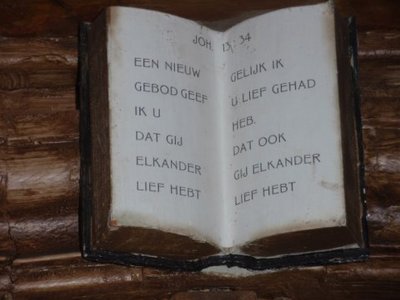 JOH. 13, 34
EEN NIEUW
GEBOD GEEF
IK U
DAT GIJ
ELKANDER
LIEF HEBT
GELIJK IK
U LIEF GEHAD
HEB.
DAT OOK
GIJ ELKANDER
LIEF HEBT